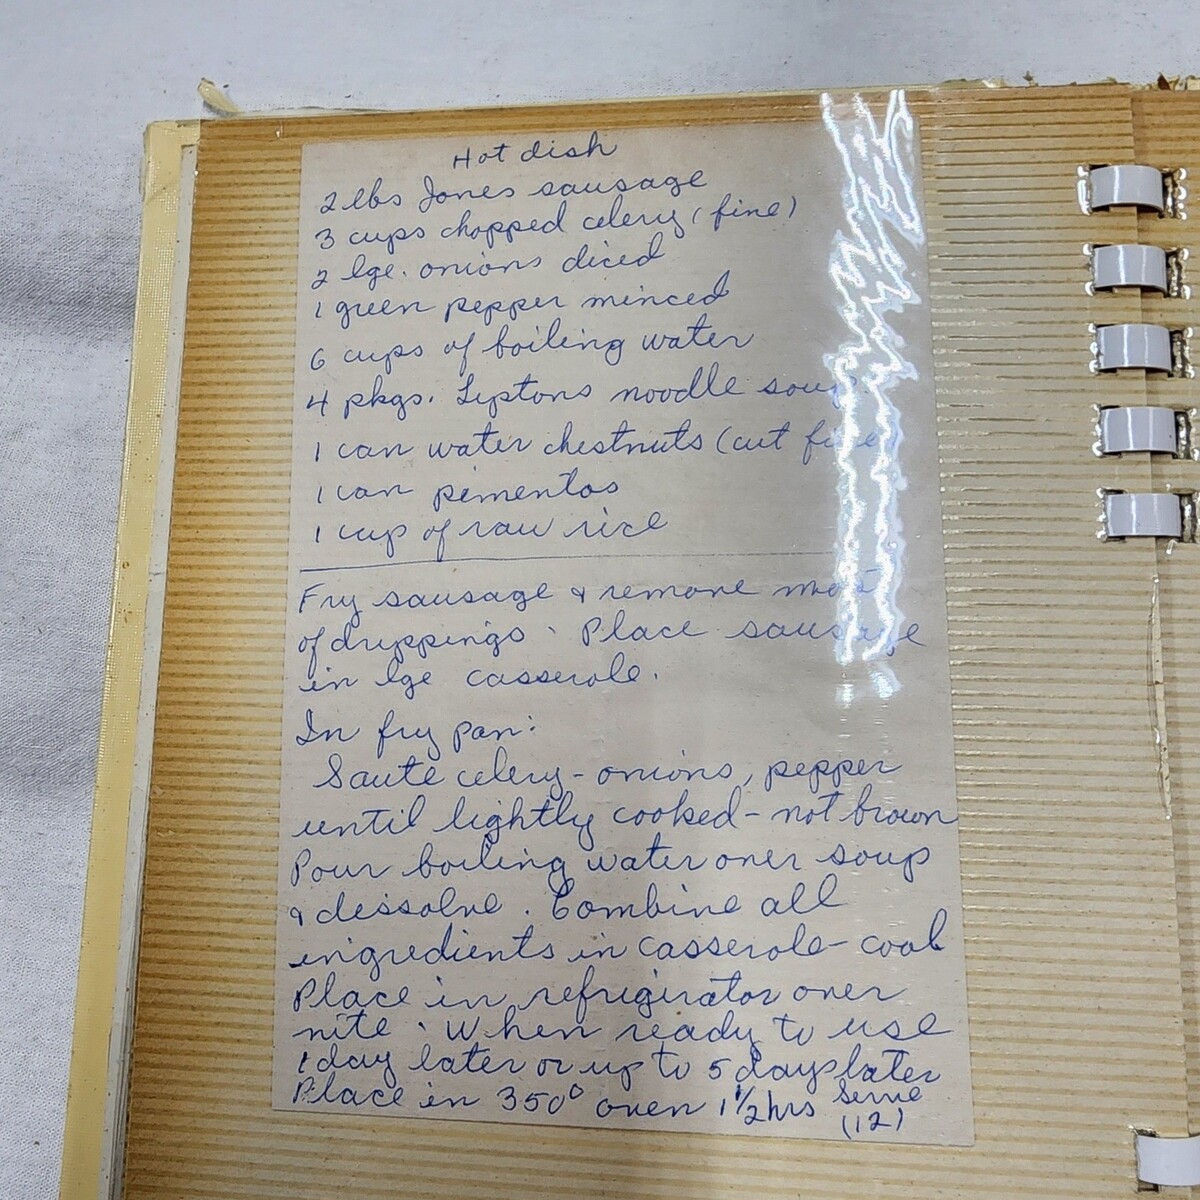 Hot dish
2 lbs Jones sausage
3 cups chopped celery (fine)
2 lge. onions diced
1 green pepper minced
6 cups of boiling water
4 pkgs. Liptons noodle soup
1 can water chestnuts (cut fine)
1 can pimentos
1 cup of raw rice
Fry sausage & remove most
of drippings. Place sausage
in lge casserole.
In fry pan:
Saute celery - onions, pepper
until lightly cooked - not brown
Pour boiling water over soup
& dissolve. Combine all
ingredients in casserole - cool
Place in refrigirator over
nite. When ready to use
1 day later or up to 5 days later
Place in 350° oven 1 1/2 hrs Serve
(12)